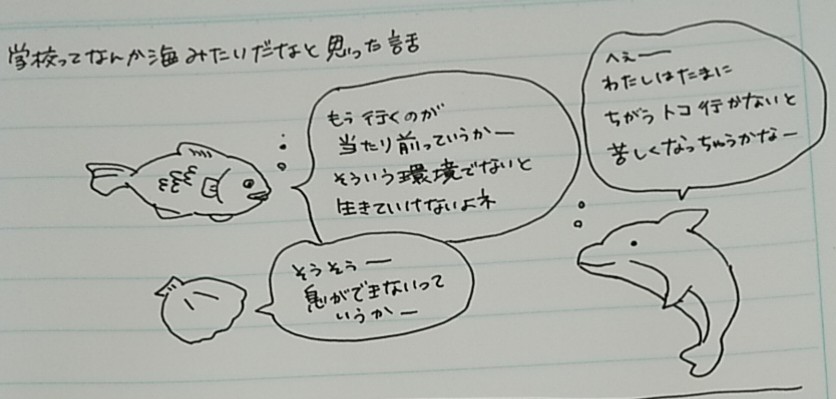 学校ってなんか海みたいだなと思った話
もう行くのが
当たり前っていうかー
そういう環境でないと
生きていけないよネ
そうそうー
息ができないって
いうかー
へぇー
わたしはたまに
ちがうトコ行かないと
苦しくなっちゃうかなー